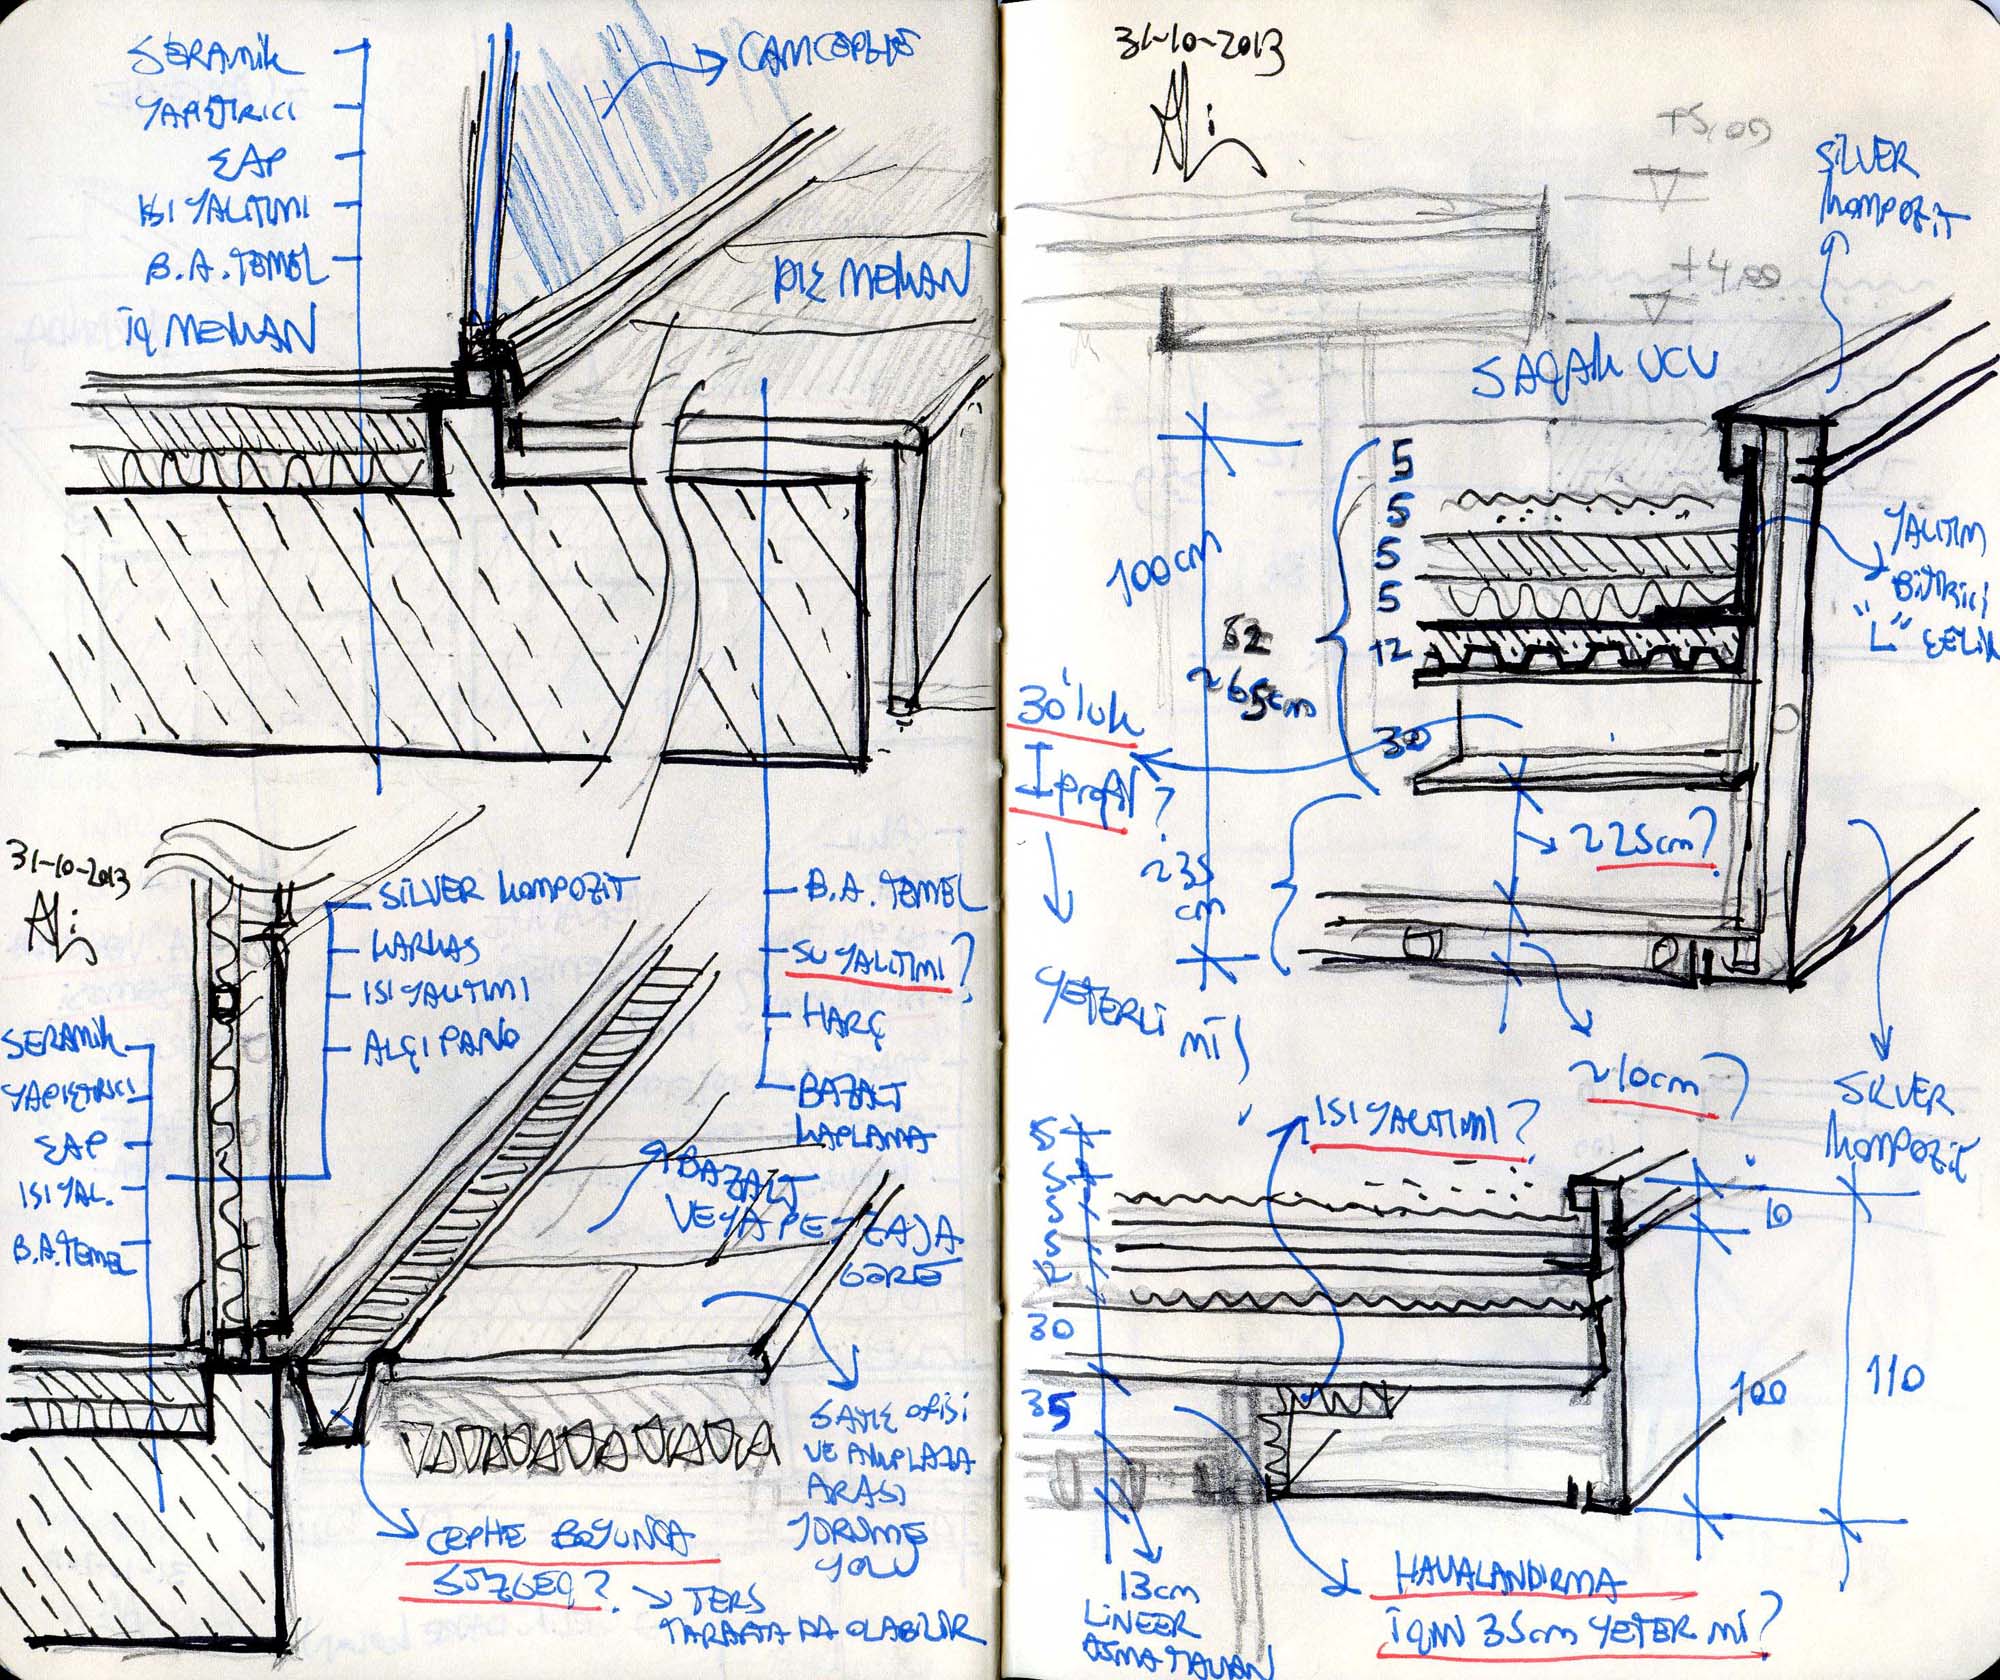 SERAMİK
YAPIŞTIRICI
ŞAP
ISI YALITIMI
B.A. TEMEL
İÇ MEKAN
CAMCEPHE
DIŞ MEKAN
31-10-2013
Ali
SİLVER KOMPOZİT
KARKAS
ISI YALITIMI
ALÇIPANO
SERAMİK
YAPIŞTIRICI
ŞAP
ISI YAL.
B.A. TEMEL
B.A. TEMEL
SU YALITIMI?
HARÇ
BAZALT
KAPLAMA
BAZALT
VEYA PEYZAJA
GÖRE
SATIŞ OFİSİ
VE AMPLAZA
ARASI
YÜRÜME
YOLU
CEPHE BOYUNCA
SÜZGEÇ?
TERS
TARAFTA DA OLABİLİR
31-10-2013
Ali
+5,00
+4,00
SİLVER
KOMPOZİT
SAÇAK UCU
5
5
5
5
12
30
100cm
62
~65cm
YALITIM
BİTİRİCİ
"L" ÇELİK
30'luk
I profil?
YETERLİ
Mİ?
~35
cm
~25cm?
~10cm?
SILVER
KOMPOZİT
ISI YALITIMI?
5
5
5
5
12
30
35
10
100
110
13cm
LİNEER
ASMA TAVAN
HAVALANDIRMA
İÇİN 35cm YETER Mİ?